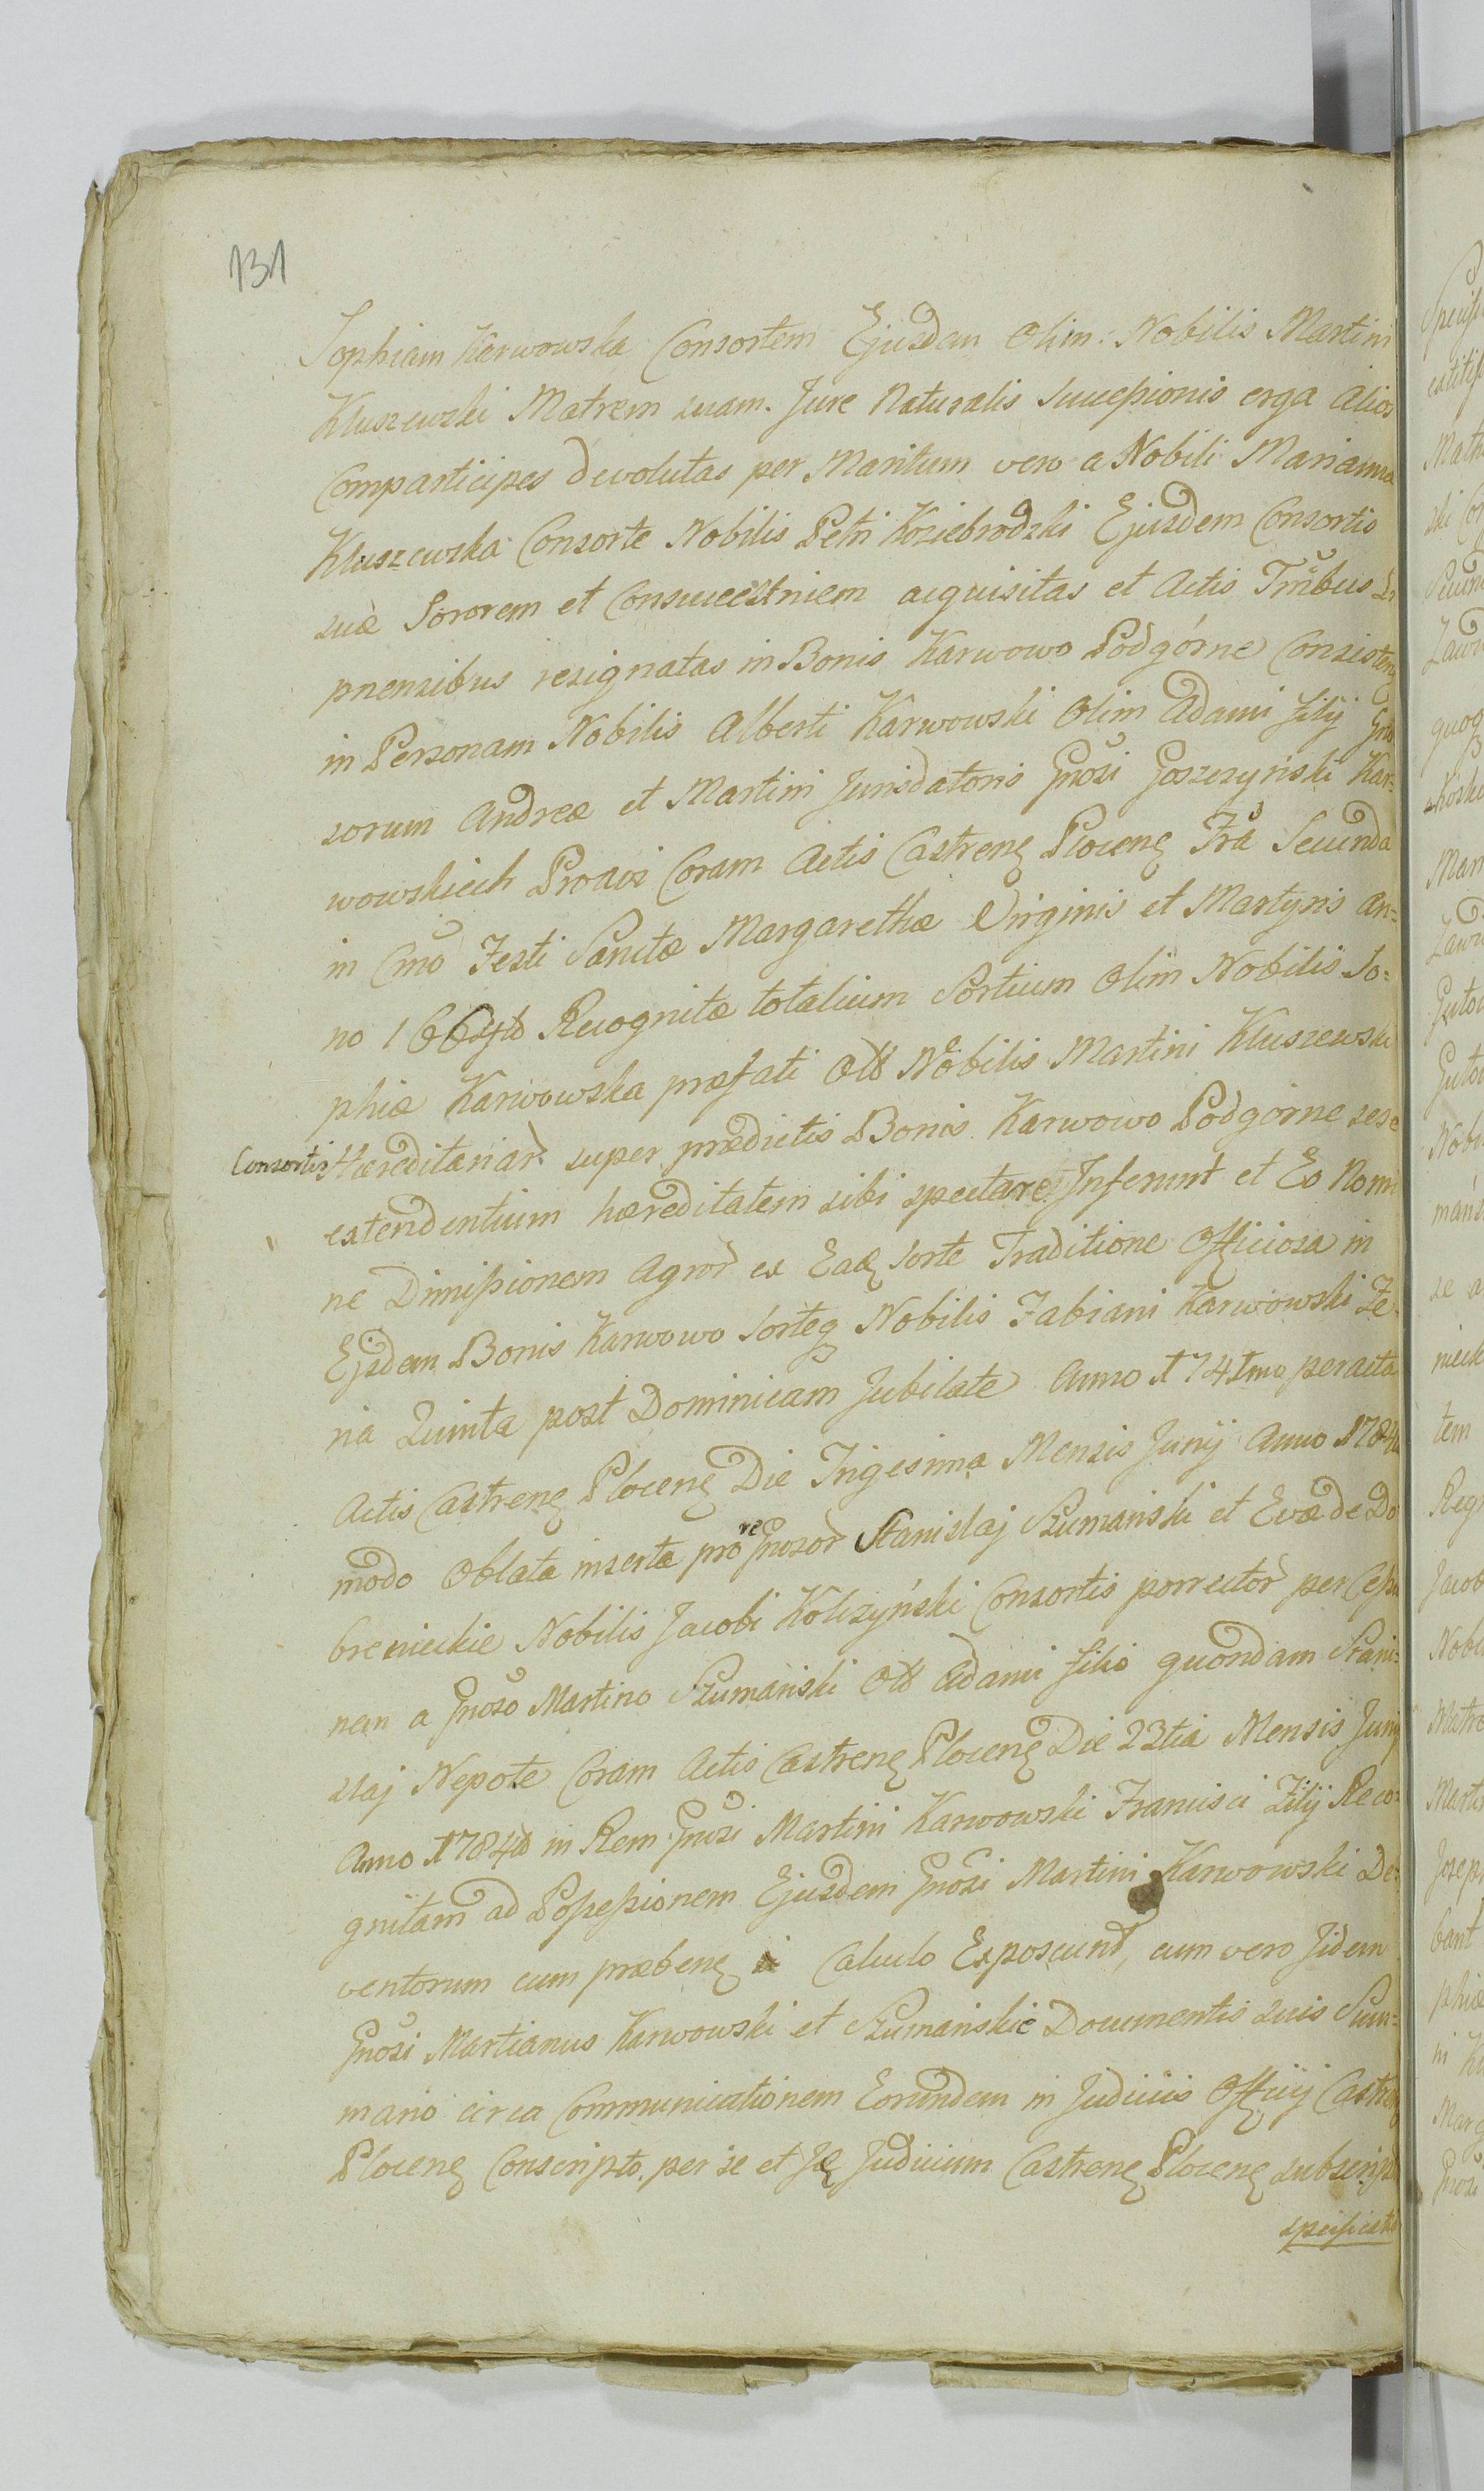 131
Sophiam Karwowska Consortem Ejusdem Olim Nobilis Martini
Kluszewski Matrem suam. Jure Naturalis Successionis erga alios
Comparticipes devolutas per Maritum vero a Nobili Marianna
Kluszewska Consorte Nobilis Petri Koziebrodzki Ejusdem Consortis
suæ Sororem et acquisitas et Actis Trnibus
pnensibus resignatas in Bonis Karwowo Podgórne Consisten
in Personam Nobilis Alberti Karwowski Olim Adami filij Gno
sorum Andreæ et Martini Jurisdatoris Gnosi Goszczyński Kar=
wowskich Proavi Coram Actis Castren Plocen Fra Secunda
in Cmo Festi Sanctæ Margarethæ Virginis et Martyris an=
no 1664to Recognitæ totalium Sortium Olim Nobilis So=
phiæ Karwowska præfati Olt Nobilis Martini Kluszewski
Consortis Hæreditariar super prædictis Bonis Karwowo Podgorne sese
extendentium hæreditatem sibi spectare Inferunt et Eo Nomi
ne Dimissionem Agror ex Ead sorte Traditione Officiosa in
Ejsdem Bonis Karwowo Sorteq Nobilis Fabiani Karwowski Fe
ria Quinta post Dominicam Jubilate Anno 1741mo peracta
Actis Castren Plocen Die Trigesima Mensis Junij Anno 1784to
modo Oblata inserta pro re Gnosor Stanislaj Szumański et Evæ de Do
brenieckie Nobilis Jacobi Kolczyński Consortis porrector per Cessio
nem a Gnoso Martino Szumański Olt Adami filio quondam Stani=
slaj Nepote Coram Actis Castren Plocen Die 23tia Mensis Junij
Anno 1784to in Rem Gnosi Martini Karwowski Francisci Filij Reco=
gnitam ad Possessionem Ejusdem Gnosi Martini Karwowski De=
ventorum cum præben Calculo Exposcunt, cum vero Jidem
Gnosi Martianus Karwowski et Szumańskie Documentis suis Sum=
mario circa Communicationem Eorundem in Judiciis Officij Castren
Plocen Conscripto per se et Jd Judicium Castrene Plocen subscrip
specificatis